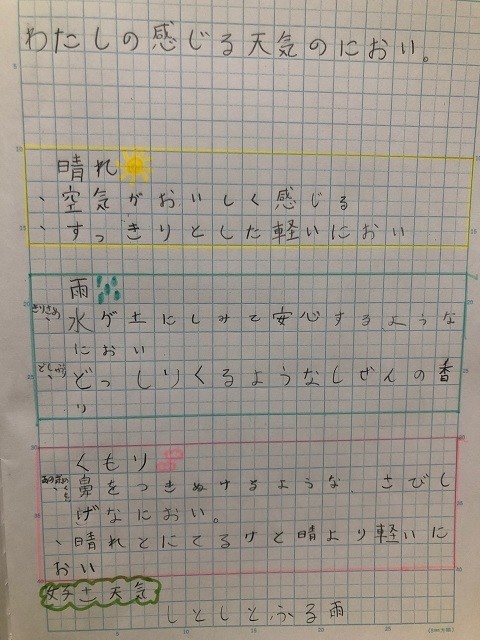 わたしの感じる天気のにおい。
晴れ
、空気がおいしく感じる
、すっきりとした軽いにおい
雨
きりさめ
、水が土にしみて安心するような
におい
どしゃぶり
、どっしりくるようなしぜんの香
り
くもり
、鼻をつきぬけるような、さびし
げなにおい。
、晴れとにてるけど晴より軽いに
おい
好きな天気
しとしとふる雨